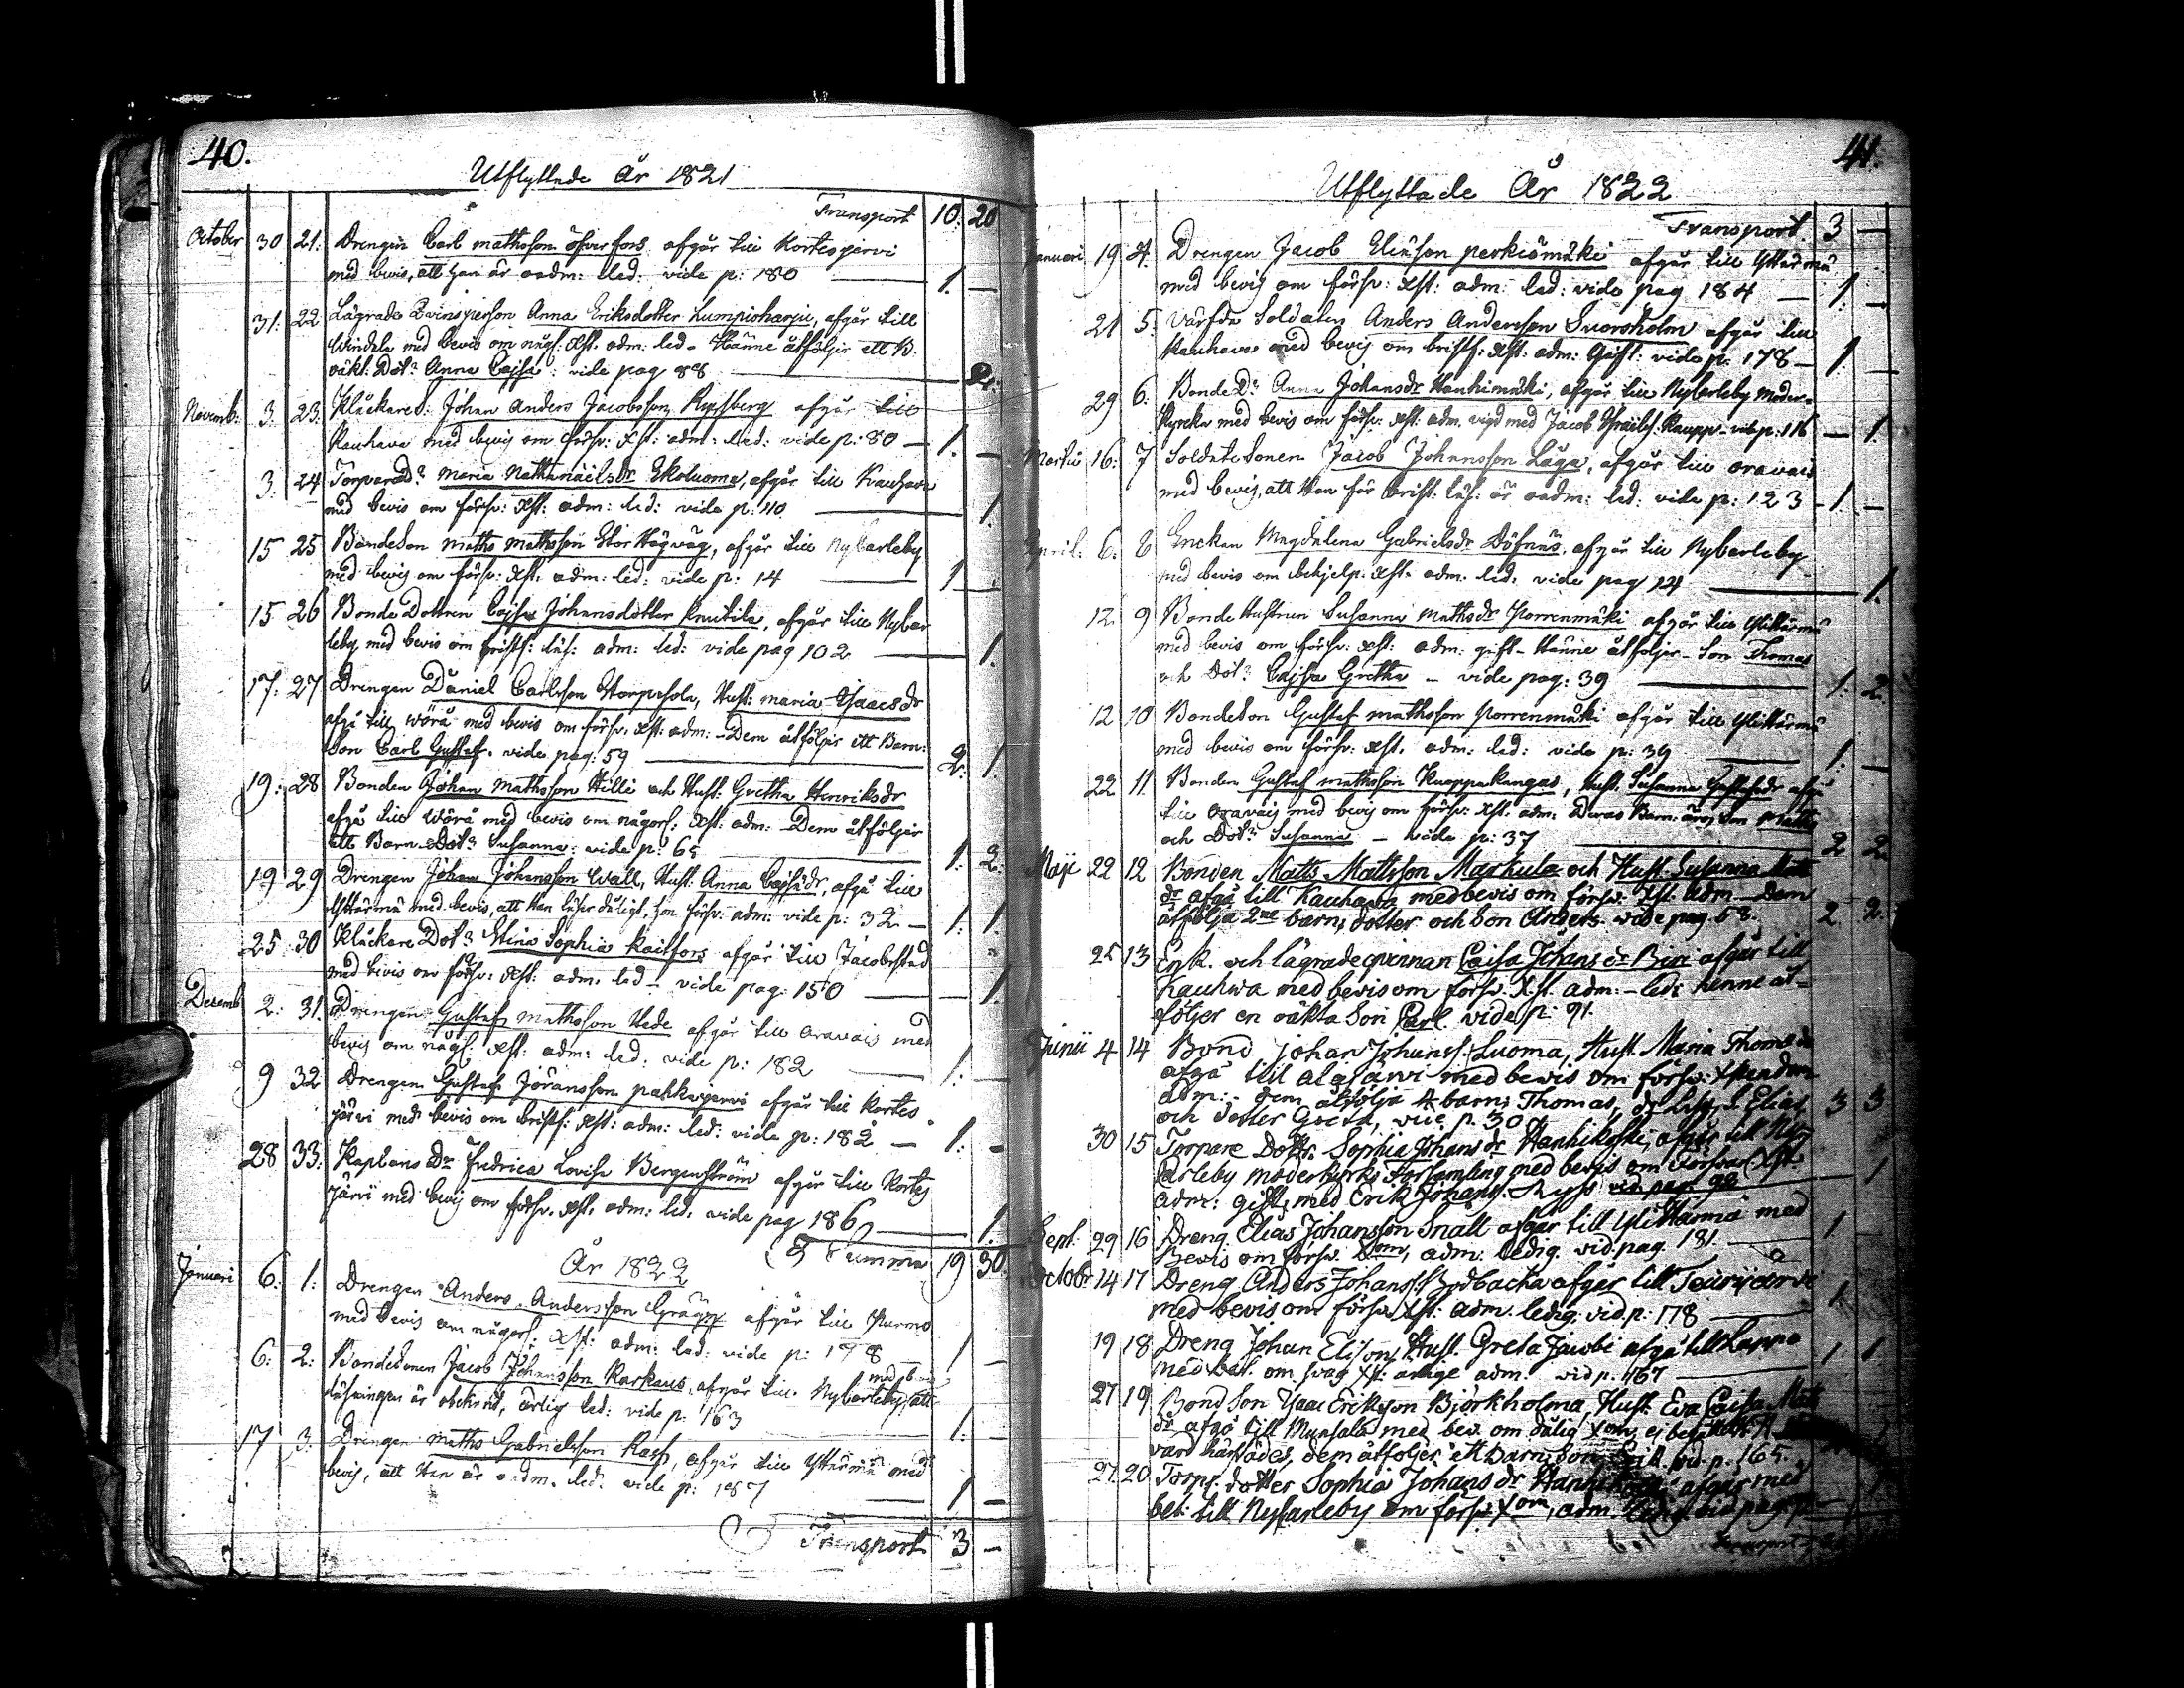 40.
Utflyttade År 1821
Transport 10. 20
October 30 21. Drengen Carl Mathsson öfverfors afgår till Kortesjervi
med bevis, att han är oadm: led: vide p: 180 — 1. —
31. 22 Lägrade Qvinsperson Anna Eriksdotter Lumpioharju, afgår till
Windala med bevis om någ: Xst: adm: led - Hänne åtföljer ett B.
oäkt: Dotr Anna Cajsa: vide pag 88 — 2.
Novemb: 3. 23. Klåckares: Johan Anders Jacobsson afgår till
Kauhava med bevis om försv: Xst: adm: led: vide p: 80 — 1. —
3. 24 Torpared: Maria Nathanaelsdr Ekoluoma, afgår till Kauhava
med bevis om försv: Xst: adm: led: vide p: 110 — 1.
15 25 Bondeson Maths Mathsson Stor Hägväg, afgår till Nycarleby
med bevis om försv: Xst: adm: led: vide p: 14 — 1. —
15 26 Bonde Dottren Cajsa Johansdotter Knutila, afgår till Nycar
leby med bevis om bristf: läs: adm: led: vide pag 102 — 1.
17: 27 Drengen Daniel Carlsson Storpesola, Hust: Maria Isaacsdr
afgå till Wörå med bevis om försv: Xst: adm: - Dem åtföljer ett Barn:
Son Carl Gustaf. vide pag: 59 — 2. 1.
19: 28 Bonden Johan Mathsson Hilli och Hust: Gretha Henriksdr
afgå till Wörå med bevis om någorl: Xst: adm: - Dem åtföljer
ett Barn Dotr Susanna: vide p: 65 — 1. 2.
19 29 Drengen Johan Johansson Wall, Hust: Anna Cajsadr, afgå till
Ytterma med bevis, att Han läser dåligt, hon försv: adm: vide p: 32 — 1. 1.
25 30 Klåckare Dotr Stina Sophia Kaitfors afgår till Jacobstad
med bevis om försv: Xst: adm: led - vide pag: 150 — 1.
Decemb 2. 31. Drengen Gustaf Mathsson Hede afgår till Oravais med
bevis om någ: Xst: adm: led: vide p: 182 — 1. —
9 32 Drengen Gustaf Jöransson pakkajervi afgår till Kortes
järvi med bevis om bristf: Xst: adm: led: vide p: 182 — 1. —
28 33: Kaplans dr Fredrica Lovisa Bergenström afgår till Kortes
järvi med bevis om försv. Xst. adm: led: vide pag 186 — 1.
Summa 19 30.
År 1822
Januari 6: 1: Drengen Anders Andersson Grägg afgår till Purmo
med bevis om någorl: Xst: adm: led: vide p: 178 — 1 —
6: 2: Bondesonen Jacob Johansson Karkaus, afgår till Nycarleby, att
läsningen är obekant, ärlig led: vide p: 163 — 1. —
17 3. Drengen Maths Gabrielsson Rasp, afgår till Yttermä med
bevis, att Han är oadm. led: vide p: 187 — 1 —
Transport 3. —
41.
Utflyttade År 1822
Transport. 3 —
Januari 19 4. Drengen Jacob Eliasson perkiömäki afgår till Ytterma
med bevis om försv: Xst: adm: led: vide pag 184 — 1. —
21 5: Värfda Soldaten Anders Andersson Suorsholm afgår till
Kauhava med bevis om bristf: Xst: adm: Gift: vide p: 178 — 1. —
29 6: Bonde Dr Anna Johansdr Hanhimäki, afgår till Nycarleby Moder-
kyrcka med bevis om försv: Xst: adm. vigd med Jacob vide p: 116 — 1.
Martii 16: 7 Soldatesonen Jacob Johansson Låga, afgår till Oravais
med bevis, att Han för brist: läs: är oadm: led: vide p: 123 — 1. —
April: 6: 8 Enckan Magdalena Gabrielsdr Döfnäs, afgår till Nycarleby
med bevis om behjelp: Xst: adm: led: vide pag 124 — 1.
12. 9 Bonde Hustrun Susanna Mathsdr Porrenmäki afgår till Ylittärmä
med bevis om försv: Xst: adm: gift - Hänne åtföljer - Son Thomas
och Dotr Cajsa Gretha - vide pag: 39 — 1. 2.
12 10 Bondeson Gustaf Mathsson Porrenmäki afgår till Ylittärmä
med bevis om försv: Xst. adm: led: vide p: 39 — 1. —
22 11. Bonden Gustaf Mathsson Kuoppakangas, Hust. Susanna Gustafsdr afgå
till Oravais med bevis om försv: Xst. adm: Deras Barn: äro Son Matts
och Dotr Susanna - vide p: 37 — 2 2
Maji 22 12 Bonden Matts Mattsson Markula och Hust. Susanna Matts
dr afgå till Kauhawa med bevis om försv. Xst. adm - dem
åtfölja 2ne barn, dotter och son Anders. vide pag. 58. 2. 2.
25 13 Enk. och lägrade qvinnan Caisa Johans dr Biri afgår till
Kauhwa med bevis om försv. Xst. adm: - led: henne åt-
följer en oäkta son Carl. vide p: 91.
Junii 4 14 Bond. Johan Johanss: Luoma, Hust. Maria Thoms dr
afgå till Alajärvi med bevis om försv: Xstendom
adm: - dem åtfölja 4 barn; Thomas, Elias,
och dotter Greta, vide p. 30 3 3
30 15 Torpare Dottr. Sophia Johans dr Hanhikoski, afgår till Ny-
Carleby moderkyrko Församling med bevis om Försvar Xst.
adm: gift, med Erik Johanss. vid. pag. 92 — 1
Sept. 29 16 Dreng Elias Johansson Snåll afgår till Ylittärmä med
Bevis om försv. Xdom, adm: ledig. vid. pag. 181. — 1
Octobr 14 17 Dreng Anders Johanss: afgår till Teurijärvi
med bevis om försv. Xst: adm. ledig. vid. p: 178 — 1.
19 18 Dreng Johan Elison, Hust. Greta Jacobi afgå till Lappo
med om svag Xst: ärlige adm. vid p. 167 — 1 1
27 19 Bond Son Isaac Eriksson Björkholma, Hust. Eva Caisa Matts
dr afgå till Munsala med bev. om dålig Xdom,
vard härstädes, dem åtföljer ett barn, Son Erik. vid. p. 165.
27. 20 Torpr: dotter Sophia Johans dr afgår med
bet: till Nycarleby om försv. Xdom, adm. ledig. vid pag — 1
Transport